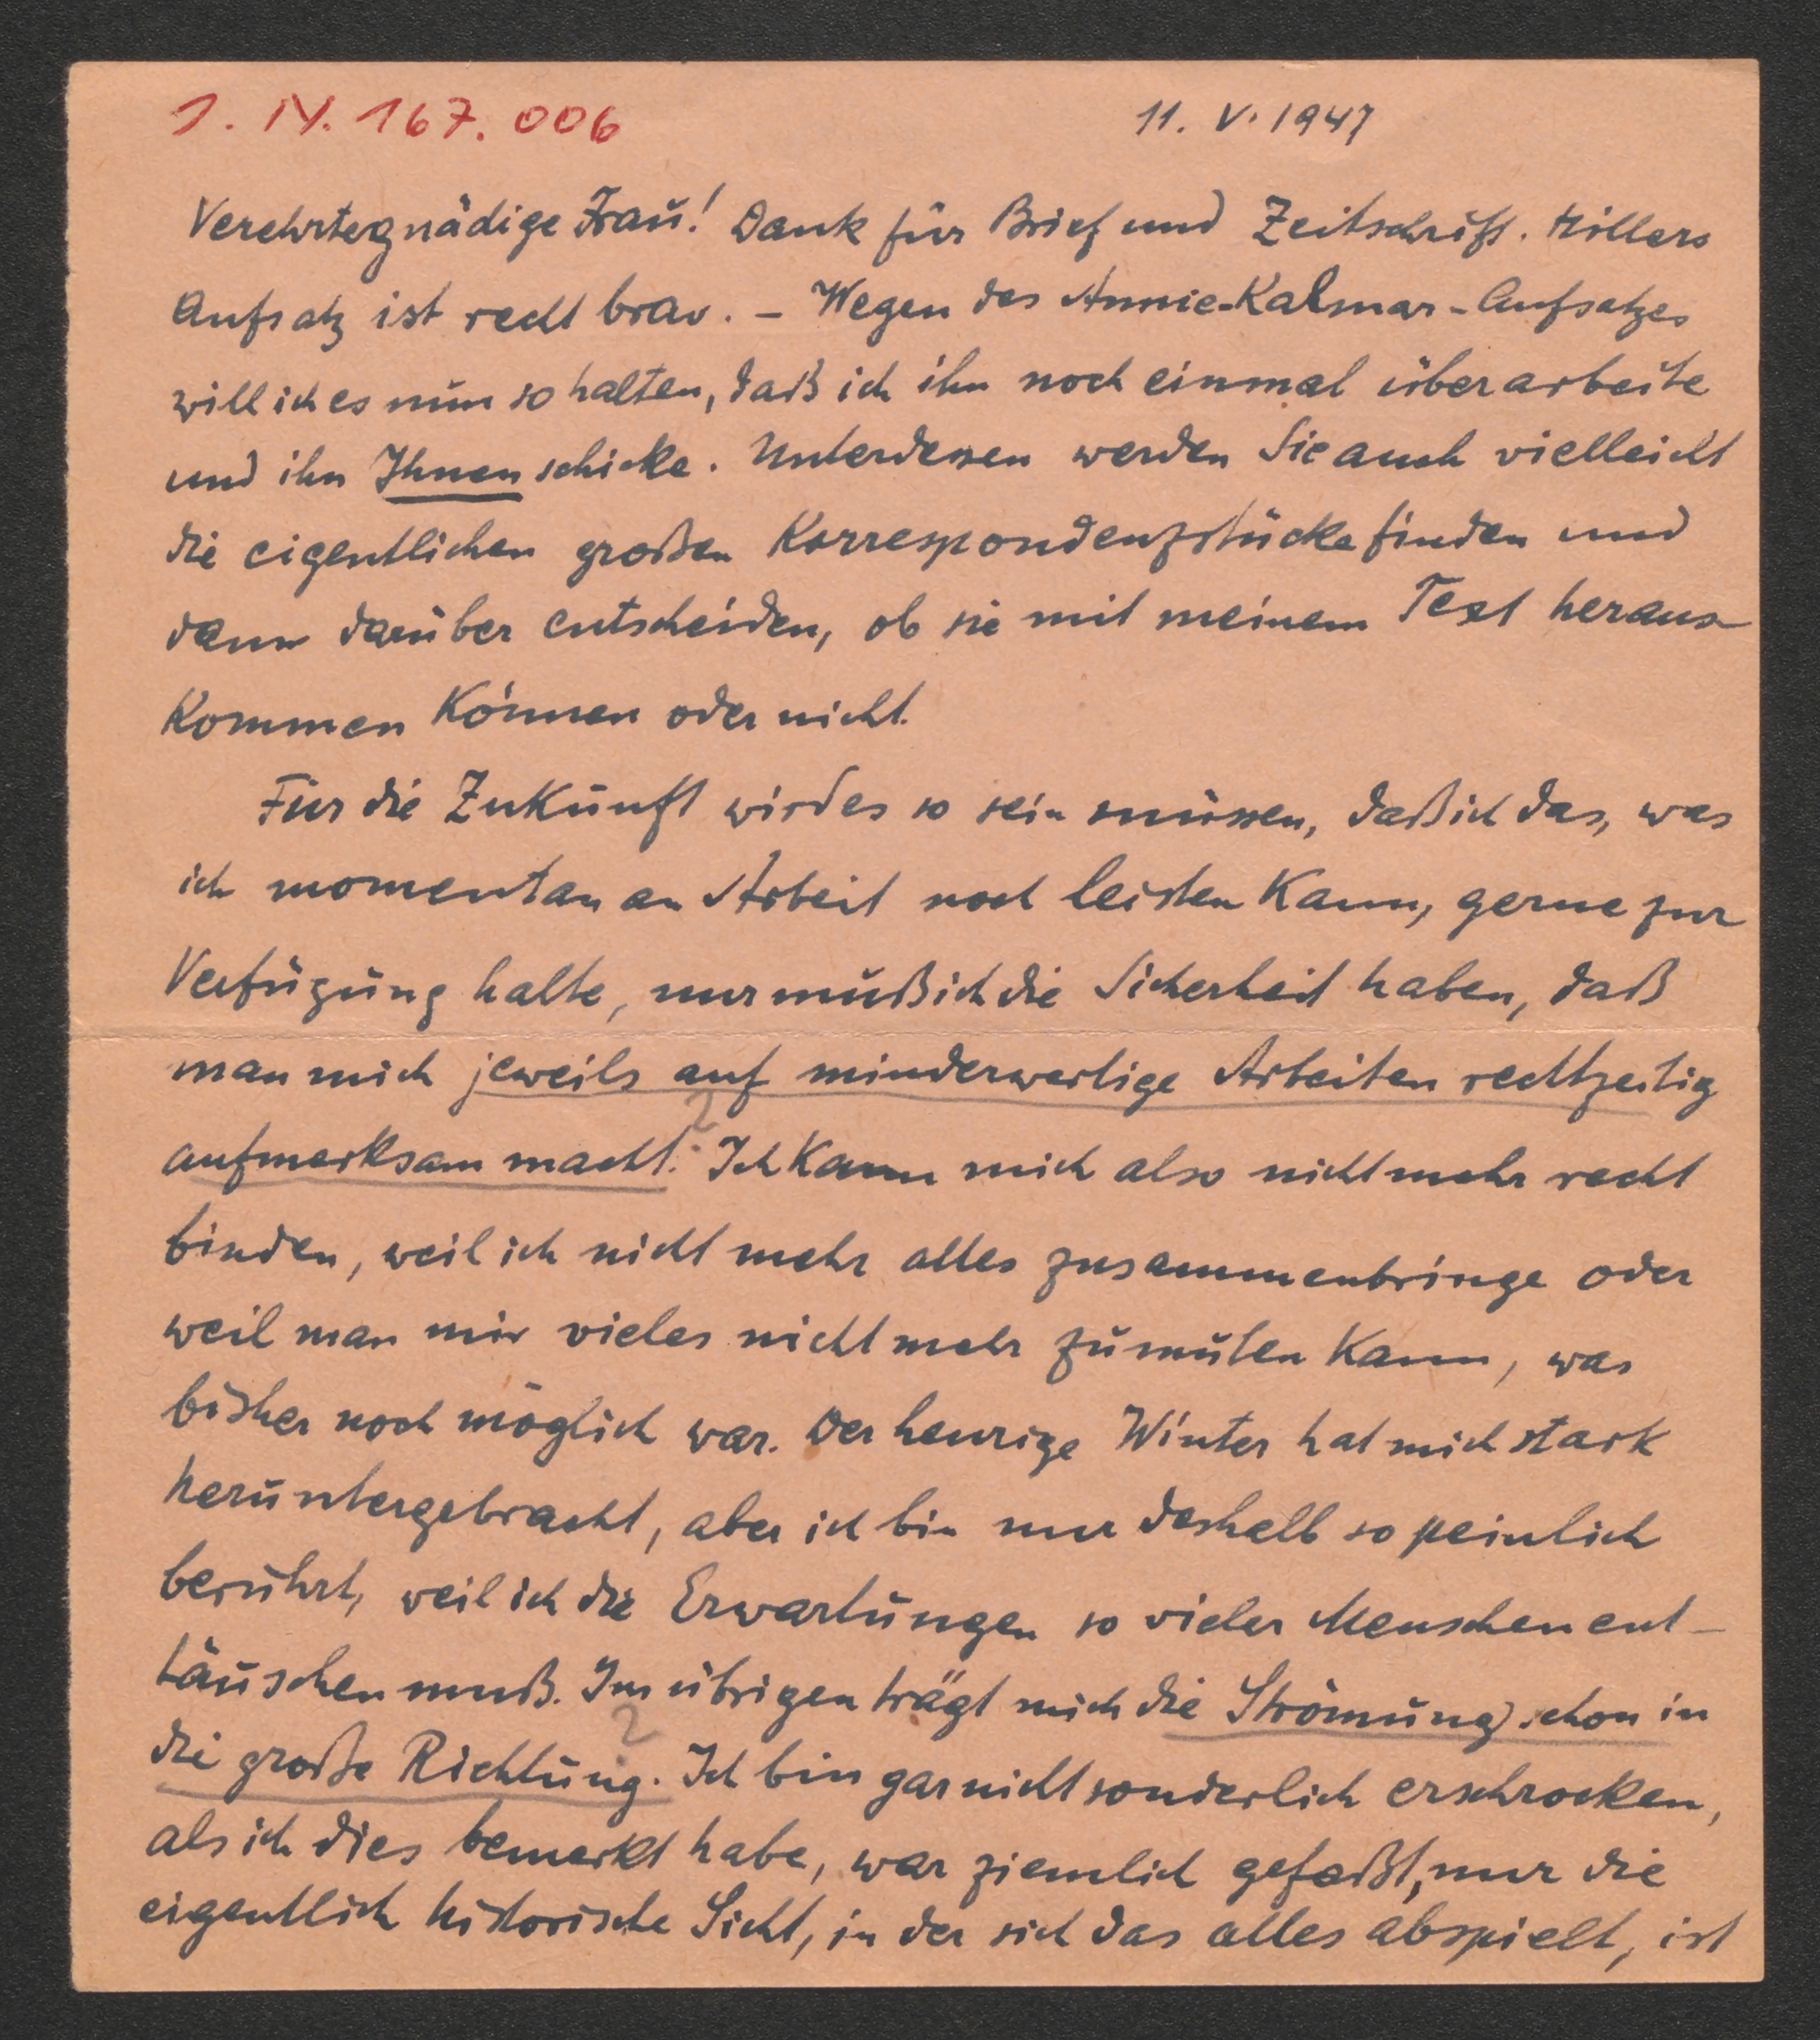 J. IV. 167. 006
11. V. 1947
Verehrte gnädige Frau! Dank für Brief und Zeitschrift. Hillers
Aufsatz ist recht brav. – Wegen des Annie-Kalmar-Aufsatzes
will ich es nun so halten, daß ich ihn noch einmal überarbeite
und ihn Ihnen schicke. Unterdessen werden Sie auch vielleicht
die eigentlichen großen Korrespondenzstücke finden und
dann darüber entscheiden, ob sie mit meinem Text heraus-
kommen können oder nicht.
Für die Zukunft wird es so sein müssen, daß ich das, was
ich momentan an Arbeit noch leisten kann, gerne zur
Verfügung halte, nur muß ich die Sicherheit haben, daß
man mich jeweils auf minderwertige Arbeiten rechtzeitig
aufmerksam macht. Ich kann mich also nicht mehr recht
binden, weil ich nicht mehr alles zusammenbringe oder
weil man mir vieles nicht mehr zumuten kann, was
bisher noch möglich war. Der heurige Winter hat mich stark
heruntergebracht, aber ich bin nur deshalb so peinlich
berührt, weil ich die Erwartungen so vieler Menschen ent-
täuschen muß. Im übrigen trägt mich die Strömung schon in
die große Richtung. Ich bin gar nicht sonderlich erschrocken,
als ich dies bemerkt habe, war ziemlich gefaßt, nur die
eigentlich historische Sicht, in der sich das alles abspielt, ist